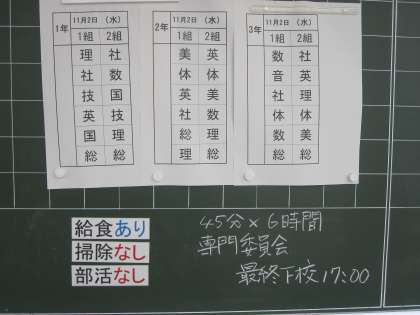 1年 11月2日 (水)
1組 2組
理 社
社 数
技 国
英 技
国 理
総 総
2年 11月2日 (水)
1組 2組
美 英
体 体
英 美
社 数
総 理
理 総
3年 11月2日 (水)
1組 2組
数 社
音 英
社 理
体 体
数 美
総 総
給食あり
掃除なし
部活なし
45分×6時間
専門委員会
最終下校17:00